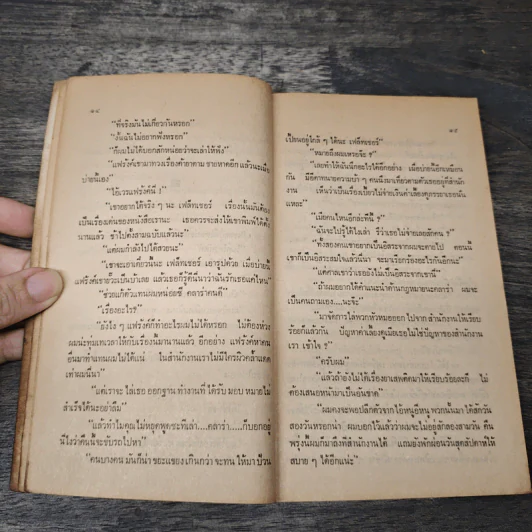 ๑๔
"ที่จริงมันไม่เกี่ยวกันหรอก"
"งั้นฉันไม่อยากฟังหรอก"
"ก็ผมไม่ได้บอกสักหน่อยว่าจะเล่าให้ฟัง"
"แฟรงค์เขามาทวงเรื่องค้าอาคาม ชายหาดอีก แล้วนะเมื่อ
บ่ายนี้เอง"
"ไอ้เวรแฟรงค์นั่น !"
"เขาอยากได้จริง ๆ นะ เฟล็ทเชอร์ เรื่องนั้นมันต้อง
เป็นเรื่องเด่นของหนังสือเรานะ เธอควรจะส่งให้เขาพิมพ์ได้ตั้ง
นานแล้ว ช้าไปตั้งสามฉบับแล้วนะ"
"แต่ผมกำลังไปได้สวยนะ"
"เขาจะเอาเดี๋ยวนี้นะ เฟล็ทเชอร์ เอารูปด้วย เมื่อบ่ายนี้
แฟรงค์เขาอ่วยเป็นบ้าเลย แล้วเธอก็รู้ดีนี่นาว่าฉันรักเธอแค่ไหน"
"ช่วยแก้ตัวแทนผมหน่อยซี คลาร่าคนดี"
"เรื่องอะไร ?"
"ยังไง ๆ แฟรงค์ก็ทำอะไรผมไม่ได้หรอก ไม่ต้องห่วง
ผมน่ะทุ่มเทเวลาให้กับเรื่องนี้มานานแล้ว อีกอย่าง แฟรงค์หาคน
อื่นมาทำแทนผมไม่ได้แน่ ในสำนักงานเราไม่มีใครผิวคล้ำแดด
เท่าผมนี่นา"
"แต่เราจะ ไล่เธอ ออกฐาน ทำงานที่ ได้รับ มอบ หมายไม่
สำเร็จได้นะอย่าลืม"
"แล้วทำไมคุณ ไม่หยุดพูดซะทีเล่า....คลาร่า....ก็บอกอยู่
นี่ไงว่าคืนนี้จะขับรถไปหา"
"คนบางคน มันก็น่า ขยะแขยง เกินกว่า จะทน ให้มา ป้วน
๑๕
เปี้ยนอยู่ใกล้ ๆ ได้นะ เฟล็ทเชอร์"
"หมายถึงผมเหรอจ๊ะ ?"
"เลยทำให้ฉันนึกอะไรได้อีกอย่าง เมื่อบ่ายนี้อีกเหมือน
กัน มีอีตาทนายความบ้า ๆ คนนึงมาเที่ยวตามตัวเธออยู่ที่สำนัก
งาน เห็นว่าเป็นเรื่องเบี้ยวไม่จ่ายเงินค่าเลี้ยงดูภรรยาเธอนั่น
แหละ"
"เมียคนไหนอีกล่ะทีนี้ ?"
"ฉันจะไปรู้ได้ไงเล่า รึว่าเธอไม่จ่ายเลยสักคน ?"
"ทั้งสองคนเขาอยากเป็นอิสระจากผมจะตายไป ตอนนี้
เขาก็เป็นอิสระสมใจแล้วนี่นา จะมาเรียกร้องอะไรกันอีกนะ"
"แต่ศาลเขาว่าเธอเองไม่เป็นอิสระจากเขานี่"
"ถ้าผมอยากได้คำแนะนำด้านกฎหมายนะคลาร่า ผมจะ
เป็นคนถามเอง....นะจ๊ะ"
"มาจัดการไล่พวกหัวหมอออกไปจาก สำนักงานให้เรียบ
ร้อยก็แล้วกัน ปัญหาค่าเลี้ยงดูเมียเธอไม่ใช่ปัญหาของสำนักงาน
เรา เข้าใจ ?"
"ครับผม"
"แล้วถ้ายังไม่ได้เรื่องยาเสพติดมาให้เรียบร้อยละก็ ไม่
ต้องเสนอหน้ามาเป็นอันขาด"
"ผมคงจะพอปลีกตัวจาก ไอ้หมู่อยู่หมู พวกนั้นมา ได้สักวัน
สองวันหรอกน่า ผมบอกไว้แล้วว่าผมจะไม่อยู่สักสองสามวัน คืน
พรุ่งนี้ผมก็มาถึงที่สำนักงานได้ แถมยังพักผ่อนวันสุดสัปดาห์ให้
สบาย ๆ ได้อีกแน่ะ"